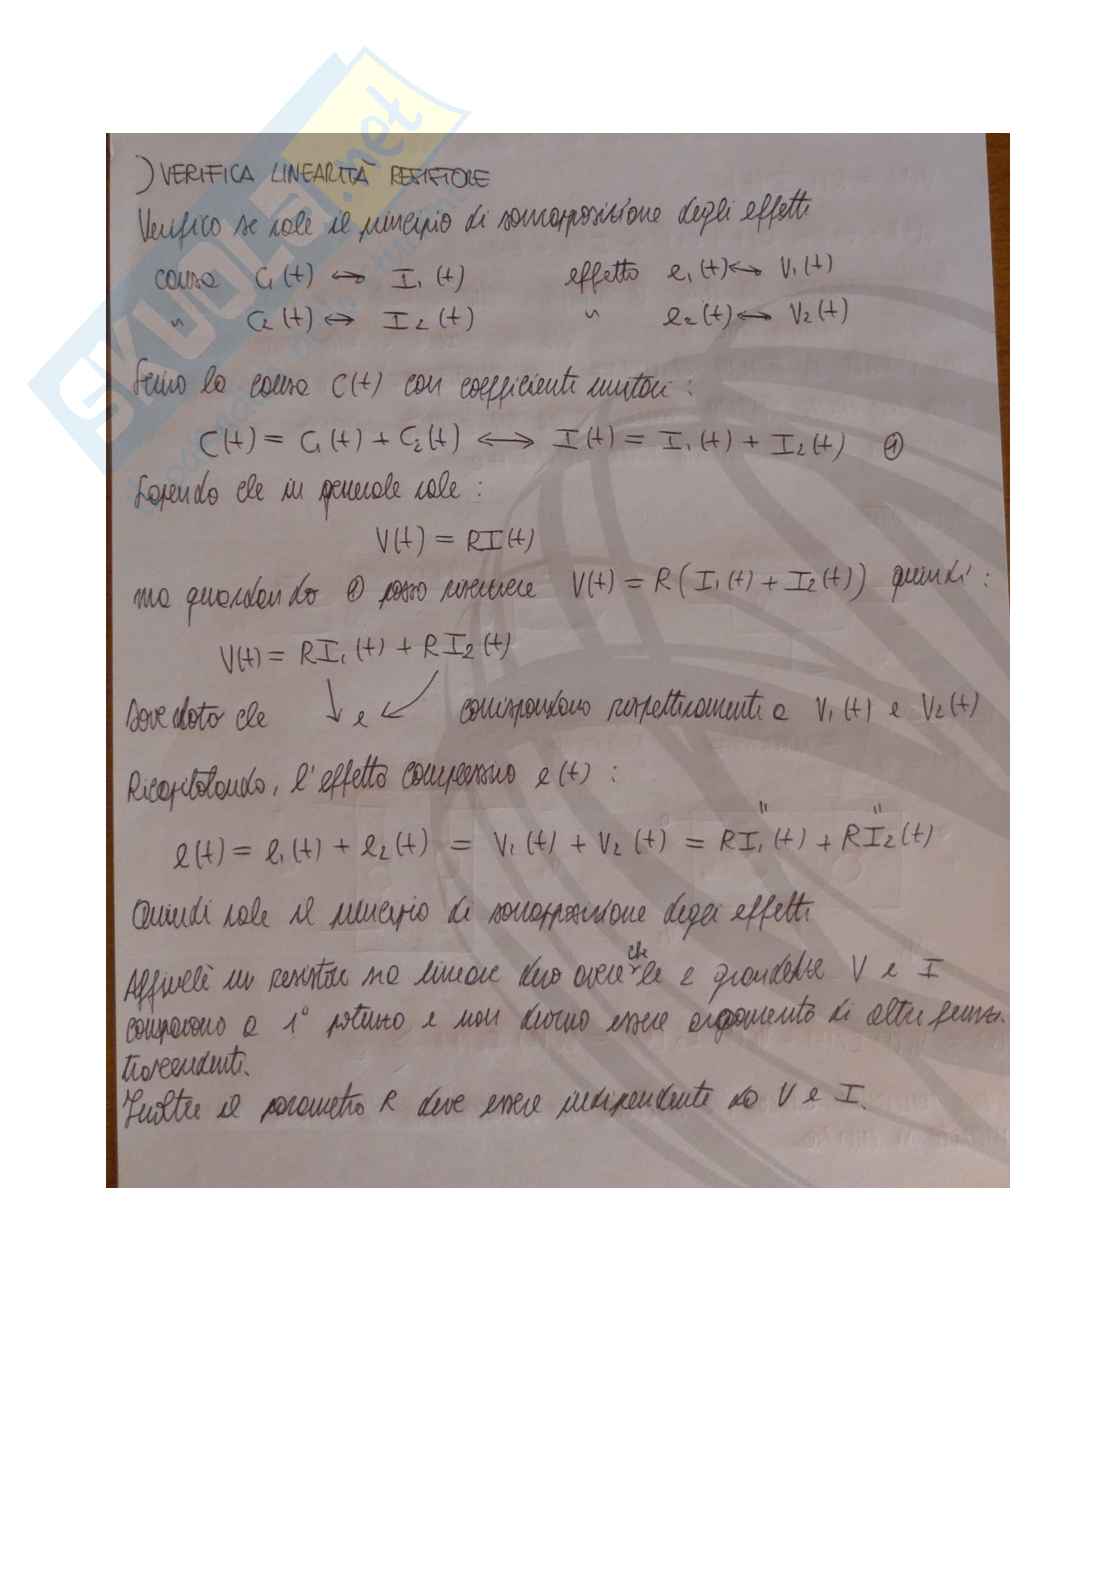 ) VERIFICA LINEARITÀ RESISTORE
Verifico se vale il principio di sovrapposizione degli effetti
causa C₁(t) ↔ I₁(t) effetto e₁(t) ↔ V₁(t)
" C₂(t) ↔ I₂(t) " e₂(t) ↔ V₂(t)
Scrivo la causa C(t) con coefficienti unitari :
C(t) = C₁(t) + C₂(t) ⟷ I(t) = I₁(t) + I₂(t) ①
Sapendo che in generale vale :
V(t) = RI(t)
ma guardando ① posso riscrivere V(t) = R(I₁(t) + I₂(t)) quindi :
V(t) = RI₁(t) + RI₂(t)
Dove dato che ↘ e ↙ corrispondono rispettivamente a V₁(t) e V₂(t)
Ricapitolando, l'effetto complessivo e(t) :
e(t) = e₁(t) + e₂(t) = V₁(t) + V₂(t) = RI₁(t) + RI₂(t)
Quindi vale il principio di sovrapposizione degli effetti
Affinché un resistore sia lineare devo avere che le 2 grandezze V e I
compaiono a 1° potenza e non devono essere argomento di altre funz.
trascendenti.
Inoltre il parametro R deve essere indipendente da V e I.
SKUOLA.net